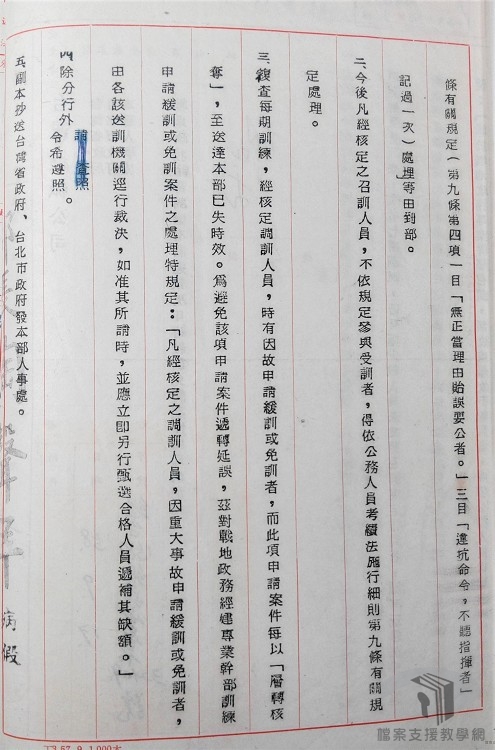 條有關規定（第九條第四項一目「無正當理由貽誤要公者。」三目「違抗命令，不聽指揮者」
記過一次）處理等由到部。
二、今後凡經核定之召訓人員，不依規定參與受訓者，得依公務人員考績法施行細則第九條有關規
定處理。
三、復查每期訓練，經核定調訓人員，時有因故申請緩訓或免訓者，而此項申請案件每以「層轉核
奪」，至送達本部已失時效。為避免該項申請案件遞轉延誤，茲對戰地政務經建專業幹部訓練
申請緩訓或免訓案件之處理特規定：「凡經核定之調訓人員，因重大事故申請緩訓或免訓者，
由各該送訓機關逕行裁決，如准其所請時，並應立即另行甄選合格人員遞補其缺額。」
四、除分行外
請查照
令希遵照。
五、副本抄送台灣省政府、台北市政府發本部人事處。
病假
57.9.1,000本
檔案支援教學網